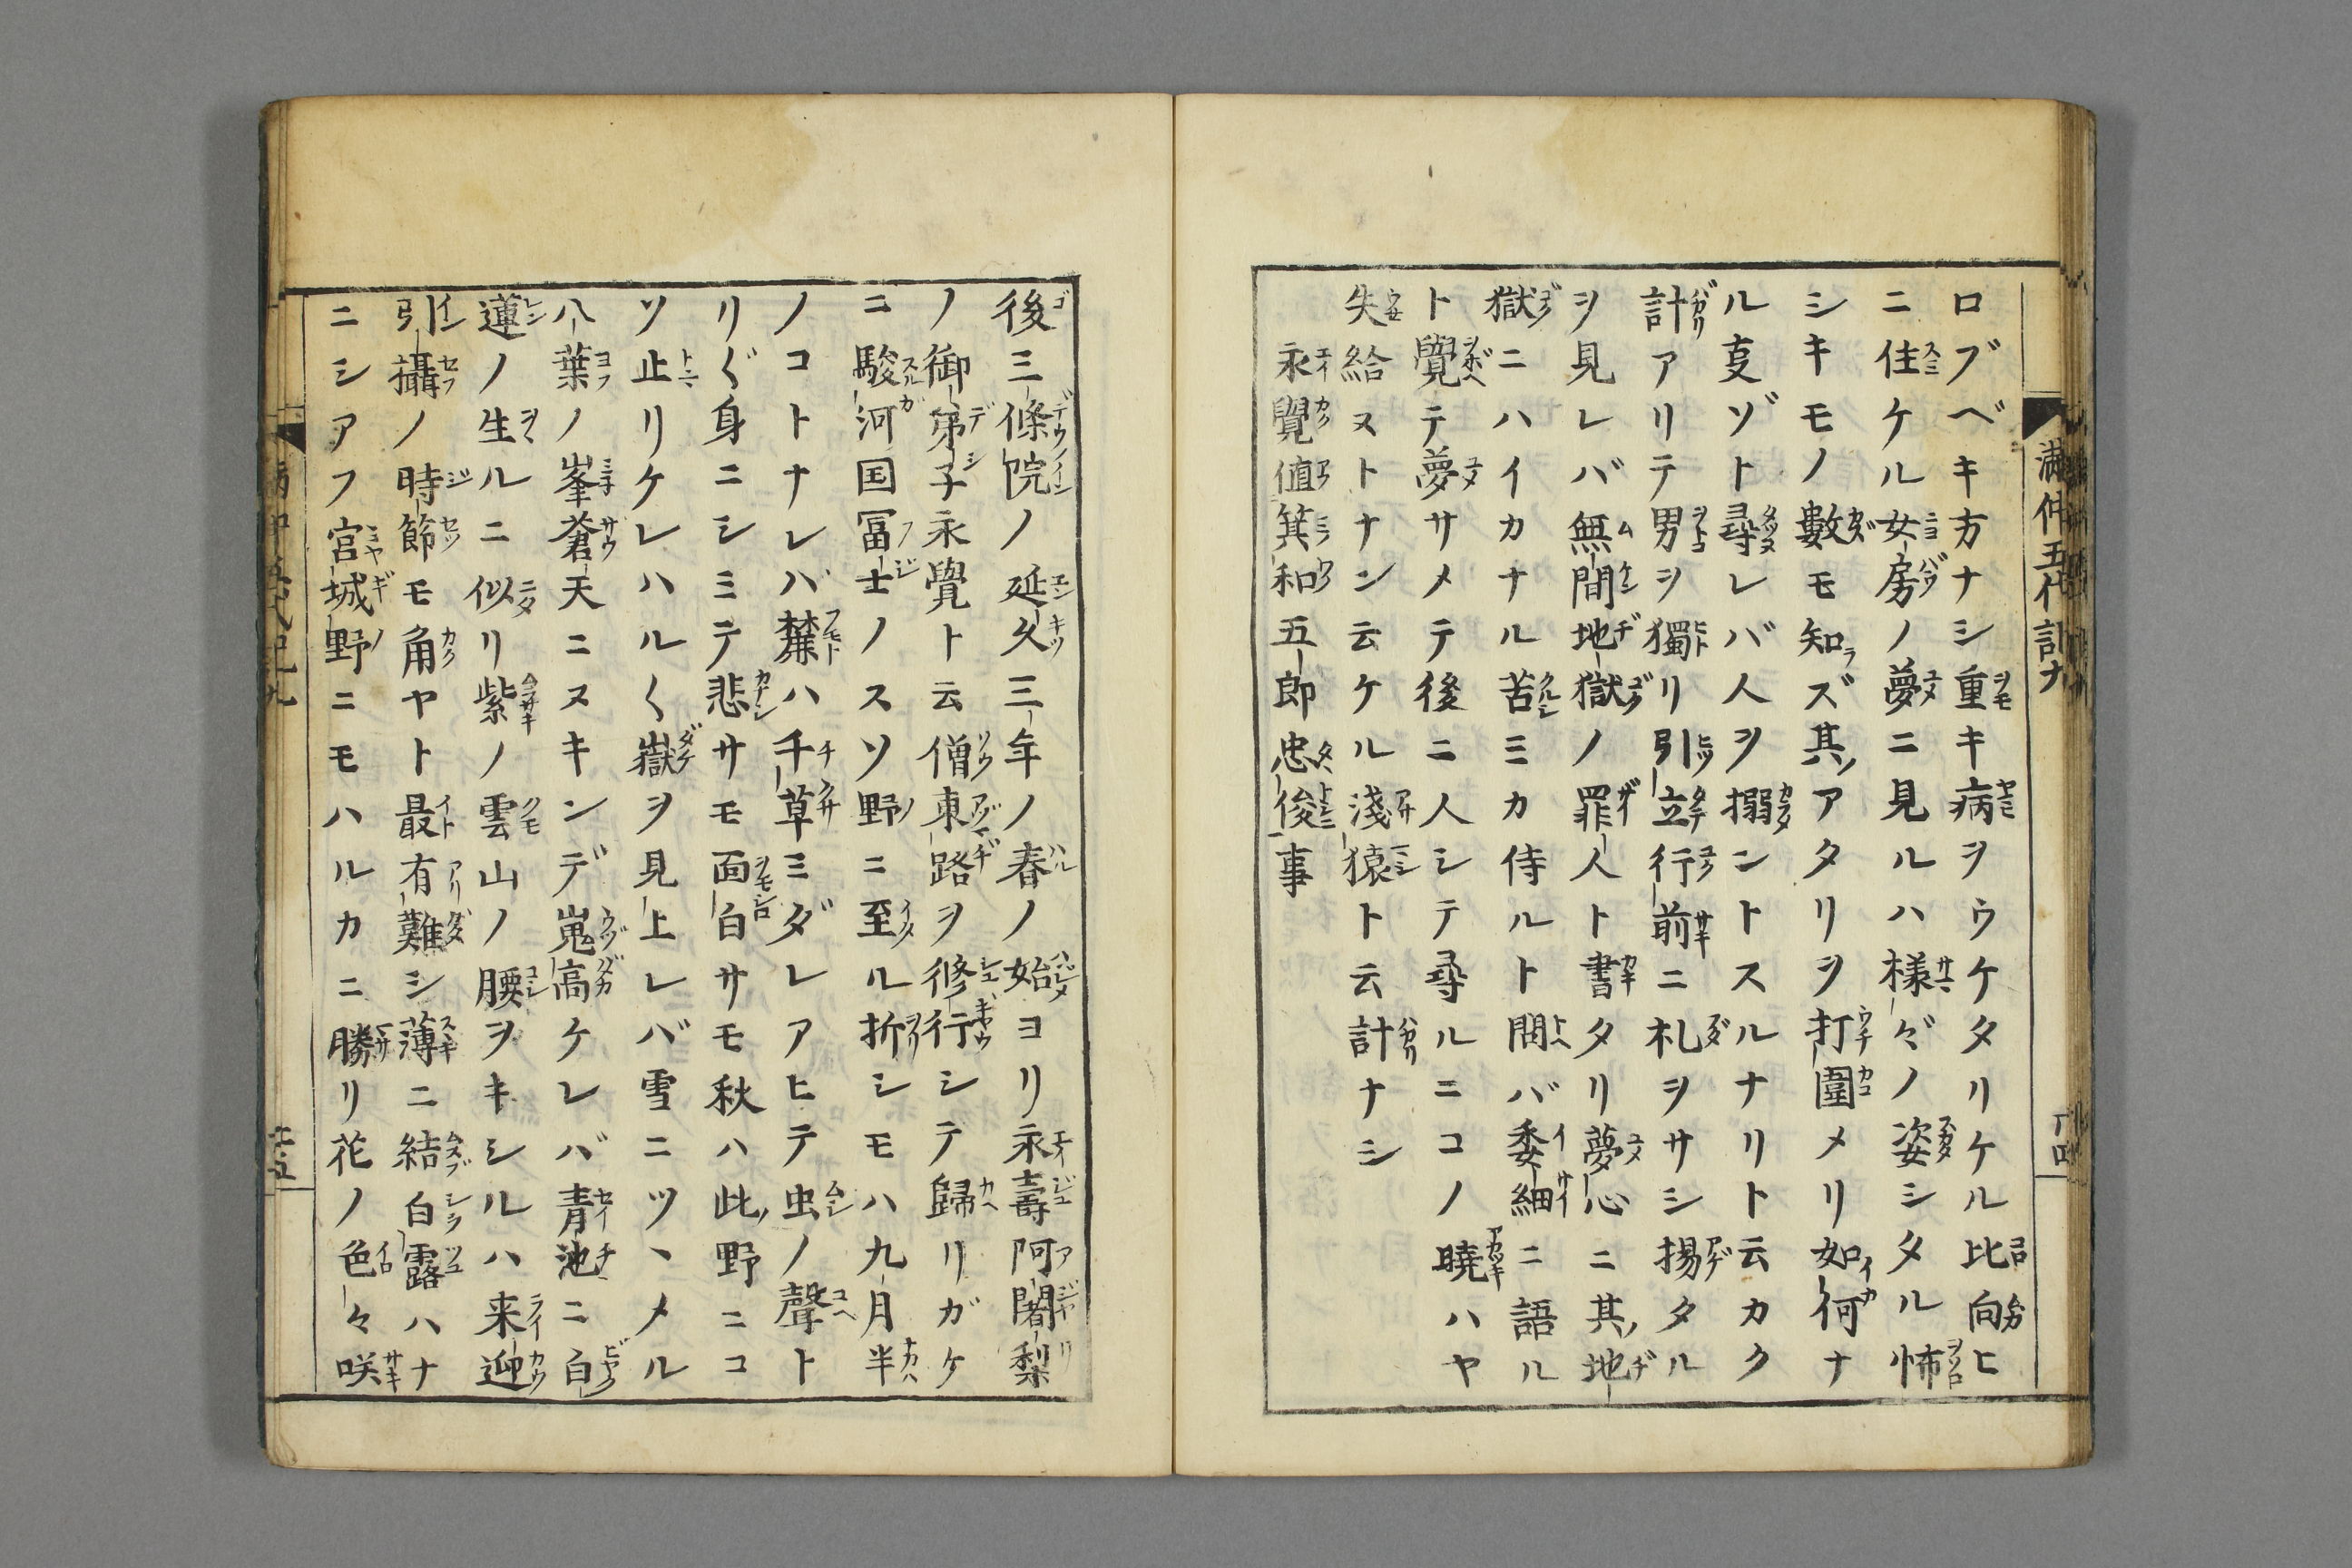 ロブベキ方ナシ重キ病ヲウケタリケル比向ヒ
ニ住ケル女房ノ夢ニ見ルハ様〻ノ姿シタル怖
シキモノ數モ知ラズ其アタリヲ打圍メリ如何ナ
ル叓ゾト尋レバ人ヲ搦ントスルナリト云カク
計アリテ男ヲ獨リ引立行前ニ札ヲサシ揚タル
ヲ見レバ無間地獄ノ罪人ト書タリ夢心ニ其地
獄ニハイカナル苦ミカ侍ルト問バ委細ニ語ル
ト覺テ夢サメテ後ニ人シテ尋ルニコノ曉ハヤ
失給ヌトナン云ケル淺猿ト云計ナシ
永覺値箕和五郎忠俊事
後三條院ノ延久三年ノ春ノ始ヨリ永壽阿闍梨
ノ御弟子永覺ト云僧東路ヲ修行シテ歸リガケ
ニ駿河国冨士ノスソ野ニ至ル折シモハ九月半
ノコトナレバ麓ハ千草ミダレアヒテ虫ノ聲ト
リ〴〵身ニシミテ悲サモ面白サモ秋ハ此野ニコ
ソ止リケレハル〱嶽ヲ見上レバ雪ニツヽメル
八葉ノ峯蒼天ニヌキンデ嵬高ケレバ青池ニ白
蓮ノ生ルニ似リ紫ノ雲山ノ腰ヲキシルハ来迎
引攝ノ時節モ角ヤト最有難シ薄ニ結白露ハナ
ニシアフ宮城野ニモハルカニ勝リ花ノ色々咲